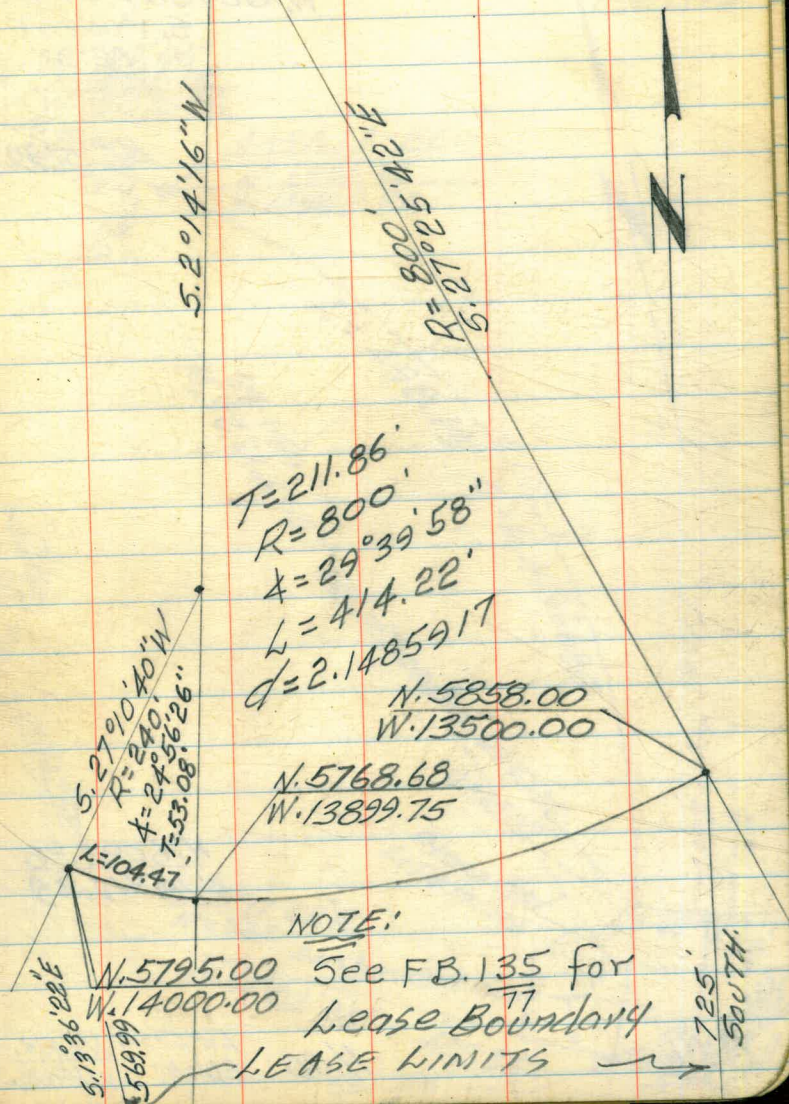 S. 2°14'16" W
R= 800'
S. 27°25'42" E
N
T= 211.86'
R= 800'
∡= 29°39'58"
L= 414.22'
d= 2.1485917
S. 27°10'40" W
R= 240'
∡= 24°56'26"
T= 53.08'
L=104.47
N. 5858.00
W. 13500.00
N. 5768.68
W. 13899.75
N. 5795.00
W. 14000.00
S. 13°36'22" E
569.99
NOTE:
See FB. 135 for
77
Lease Boundary
LEASE LIMITS
725'
SOUTH.